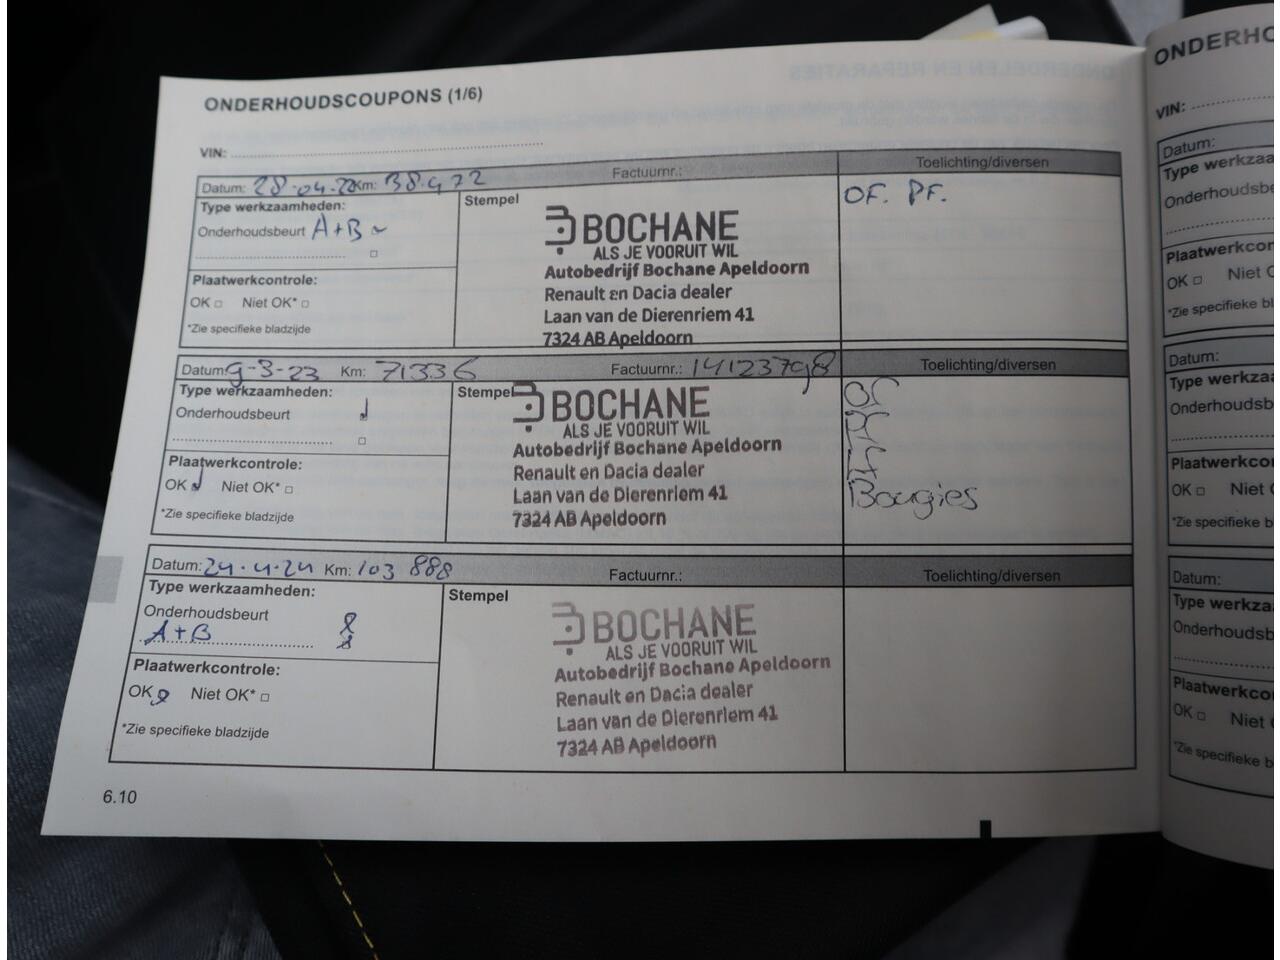 ONDERHOUDSCOUPONS (1/6)
VIN:
Datum: 28-04-22 Km: 38.972 Factuurnr.: Toelichting/diversen
Type werkzaamheden:
Onderhoudsbeurt A+B
Stempel
BOCHANE
ALS JE VOORUIT WIL
Autobedrijf Bochane Apeldoorn
Renault en Dacia dealer
Laan van de Dierenriem 41
7324 AB Apeldoorn
OF. PF.
Plaatwerkcontrole:
OK □ Niet OK* □
*Zie specifieke bladzijde
Datum: 9-3-23 Km: 71336 Factuurnr.: 14123798 Toelichting/diversen
Type werkzaamheden:
Onderhoudsbeurt
Stempel
BOCHANE
ALS JE VOORUIT WIL
Autobedrijf Bochane Apeldoorn
Renault en Dacia dealer
Laan van de Dierenriem 41
7324 AB Apeldoorn
Bougies
Plaatwerkcontrole:
OK Niet OK* □
*Zie specifieke bladzijde
Datum: 24-4-24 Km: 103 888 Factuurnr.: Toelichting/diversen
Type werkzaamheden:
Onderhoudsbeurt
A+B
Stempel
BOCHANE
ALS JE VOORUIT WIL
Autobedrijf Bochane Apeldoorn
Renault en Dacia dealer
Laan van de Dierenriem 41
7324 AB Apeldoorn
Plaatwerkcontrole:
OK Niet OK* □
*Zie specifieke bladzijde
6.10
ONDERHO
VIN:
Datum:
Type werkza
Onderhoudsbe
Plaatwerkcor
OK □ Niet
*Zie specifieke bl
Datum:
Type werkza
Onderhoudsb
Plaatwerkco
OK □ Niet
*Zie specifieke b
Datum:
Type werkza
Onderhoudsb
Plaatwerkco
OK □ Niet
*Zie specifieke b